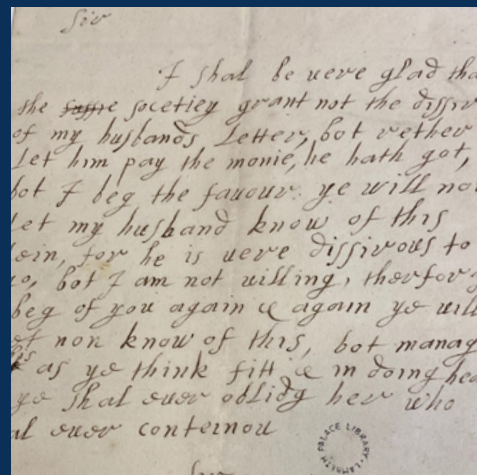 Sir
I shal be uere glad tha
the socetiey grant not the dissir
of my husbands Letter, bot rether
Let him pay the monie, he hath got,
bot I beg the fauour ye will no
let my husband know of this
ein, for he is uere dissirous to
o, bot I am not uilling, therfor
beg of you again & again ye will
et non know of this, bot manag
as ye think fitt & in doing
ye shal euer oblidg her who
al euer conternou
LAMBETH PALACE LIBRARY